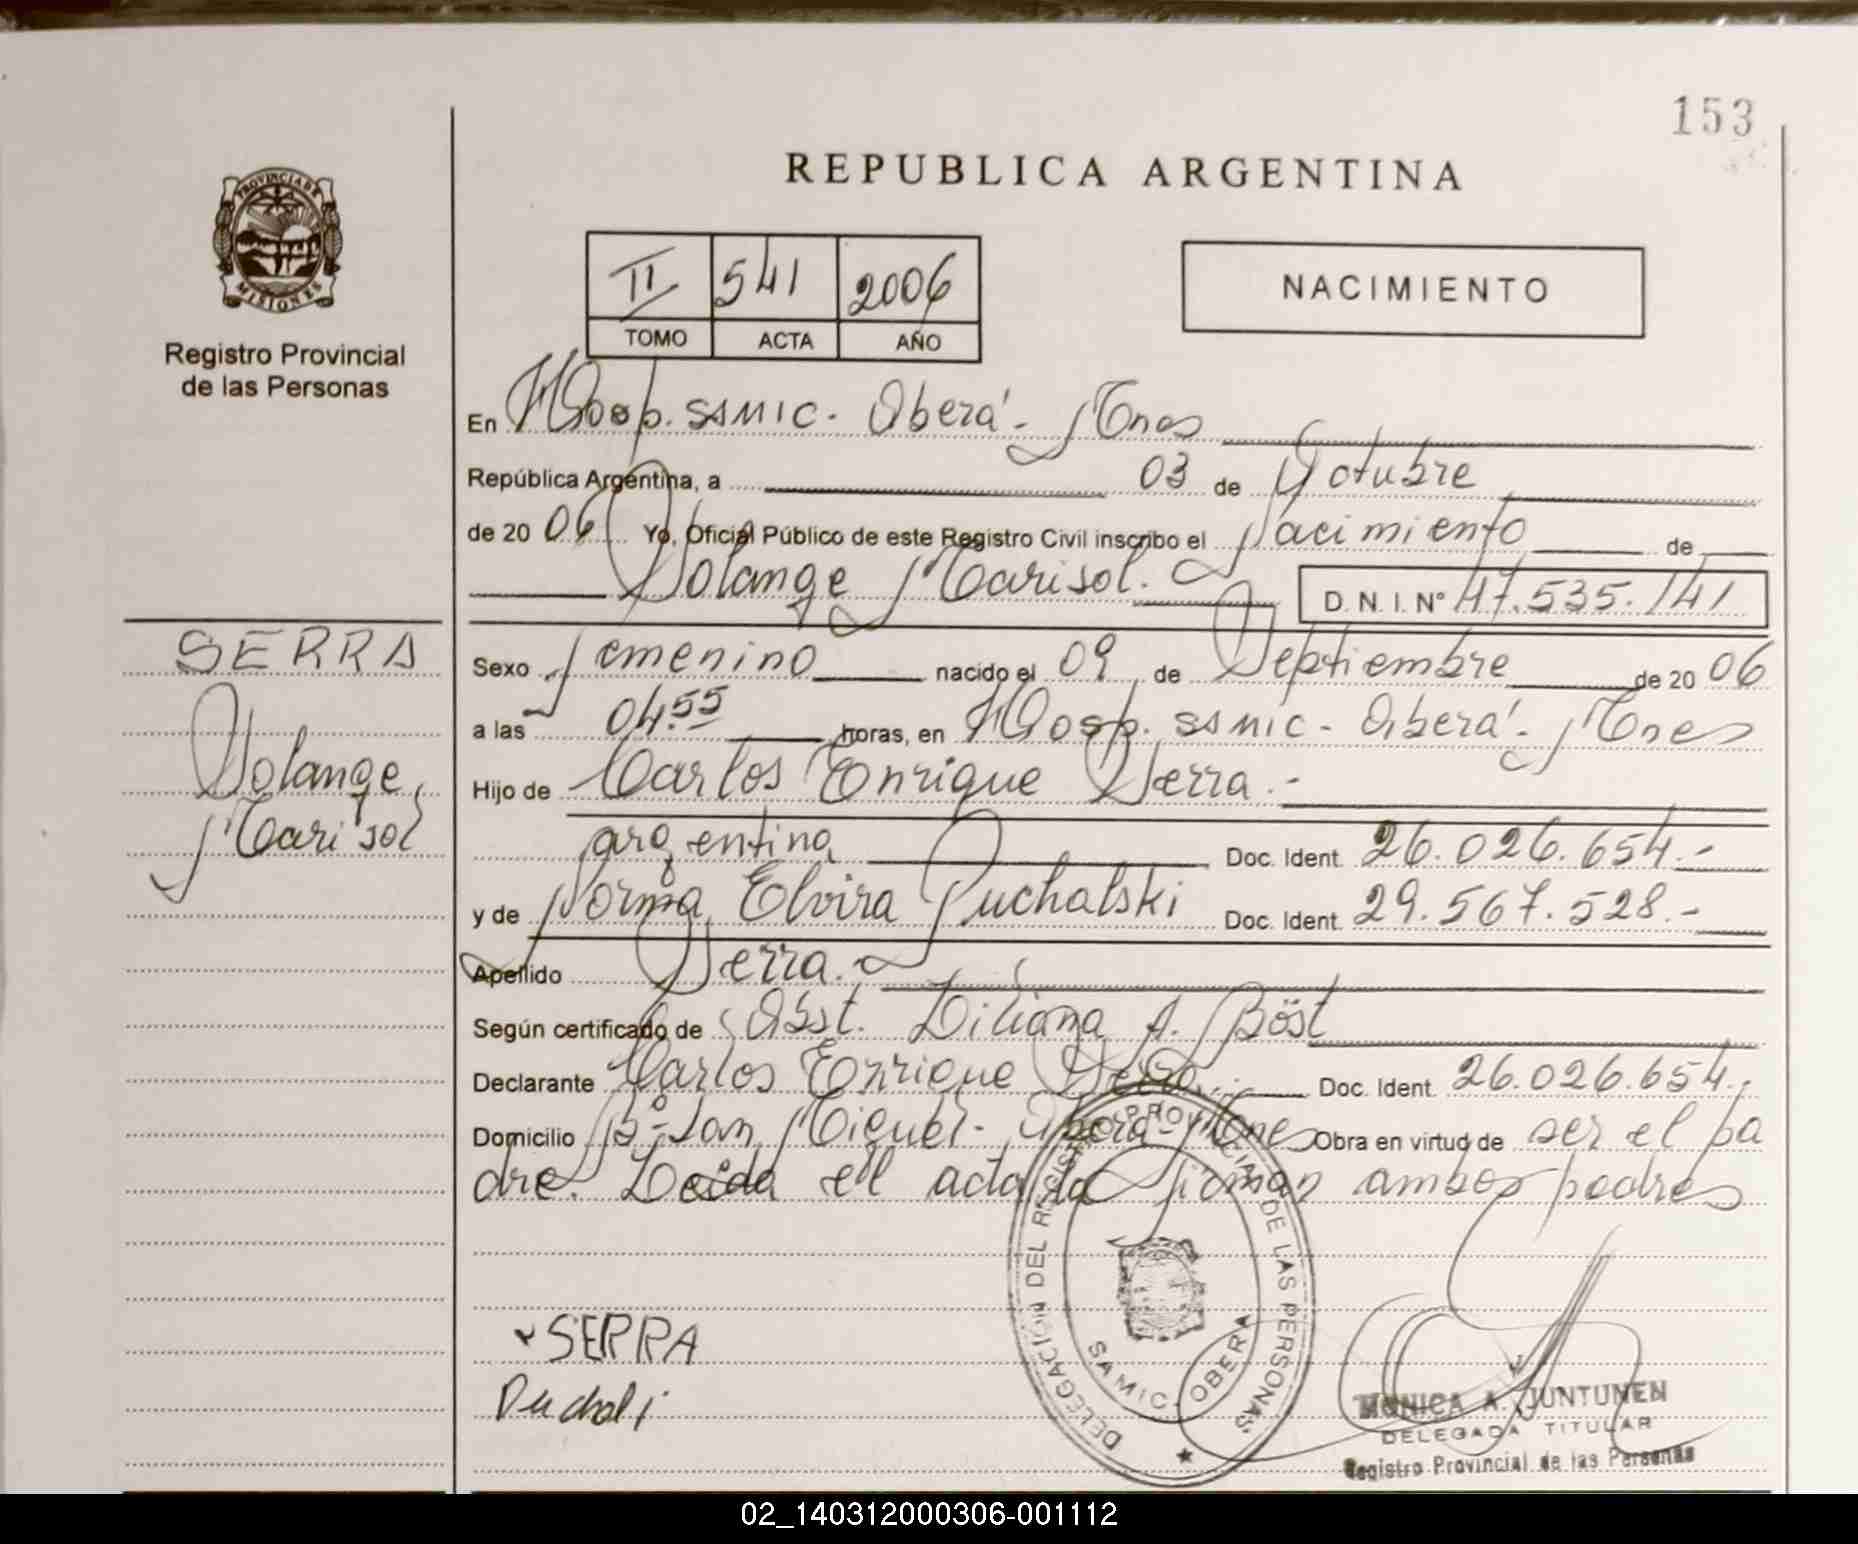 153
REPUBLICA ARGENTINA
PROVINCIA DE
MISIONES
Registro Provincial
de las Personas
II 541 2006
TOMO ACTA AÑO
NACIMIENTO
En Hosp. SAMIC - Oberá - Mnes
República Argentina, a 03 de Octubre
de 2006 Yo, Oficial Público de este Registro Civil inscribo el Nacimiento de
Solange Marisol. D. N. I. Nº 47.535.141
SERRA
Solange
Marisol
Sexo Femenino nacido el 09 de Septiembre de 2006
a las 04.55 horas, en Hosp. SAMIC - Oberá - Mnes
Hijo de Carlos Enrique Serra.-
argentina Doc. Ident. 26.026.654.-
y de Norma Elvira Puchalski Doc. Ident. 29.567.528.-
Apellido Serra.
Según certificado de Obst. Liliana A. Böst
Declarante Carlos Enrique Serra Doc. Ident. 26.026.654.-
Domicilio Bº San Miguel - Oberá - Mnes Obra en virtud de ser el pa
dre. Leída el acta la firman ambos padres
DELEGACION DEL REGISTRO PROVINCIAL DE LAS PERSONAS
SAMIC. OBERA
SERRA
MONICA A. JUNTUNEN
DELEGADA TITULAR
Registro Provincial de las Personas
02_140312000306-001112